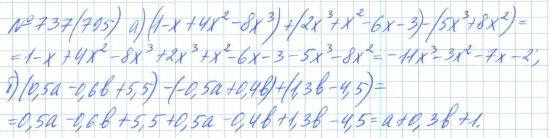 №737(795) а) (1-x+4x²-8x³)+(2x³+x²-6x-3)-(5x³+8x²)=
=1-x+4x²-8x³+2x³+x²-6x-3-5x³-8x²=-11x³-3x²-7x-2;
б) (0,5a-0,6b+5,5)-(-0,5a+0,4b)+(1,3b-4,5)=
=0,5a-0,6b+5,5+0,5a-0,4b+1,3b-4,5=a+0,3b+1.